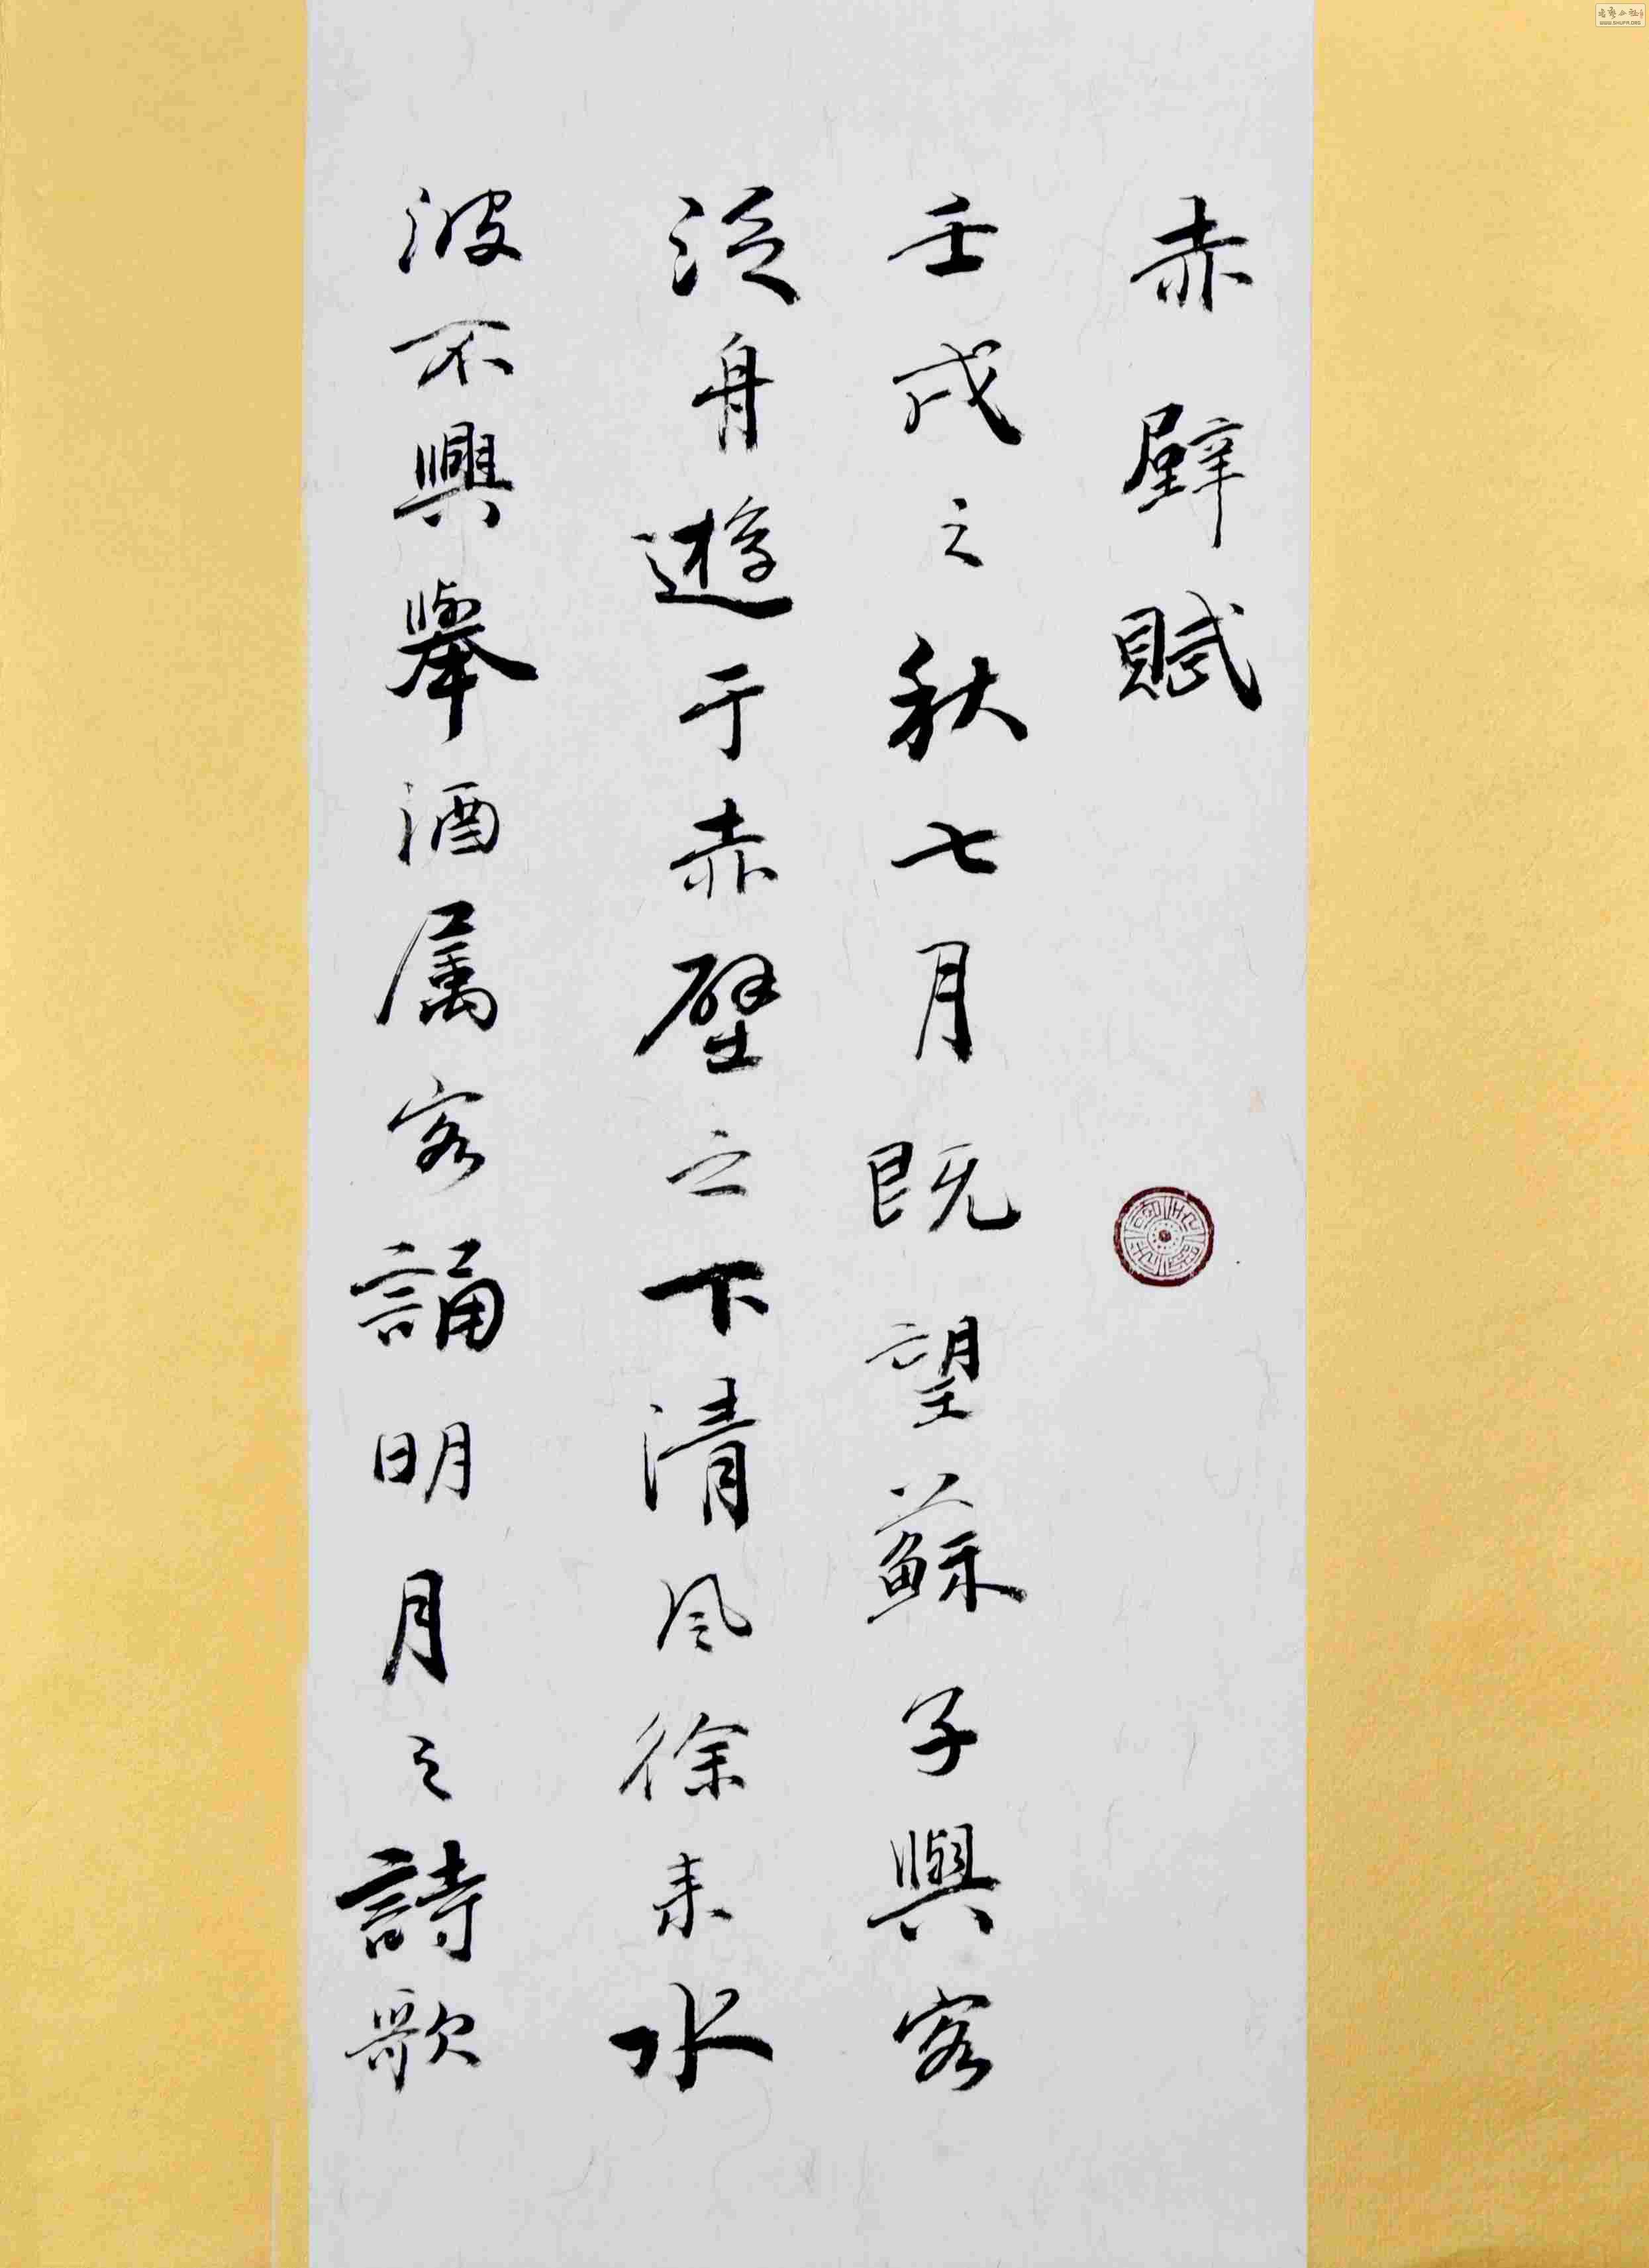 赤壁賦
壬戌之秋七月既望蘇子與客
泛舟遊于赤壁之下清风徐来水
波不興舉酒属客誦明月之詩歌
WWW.SHUFA.ORG